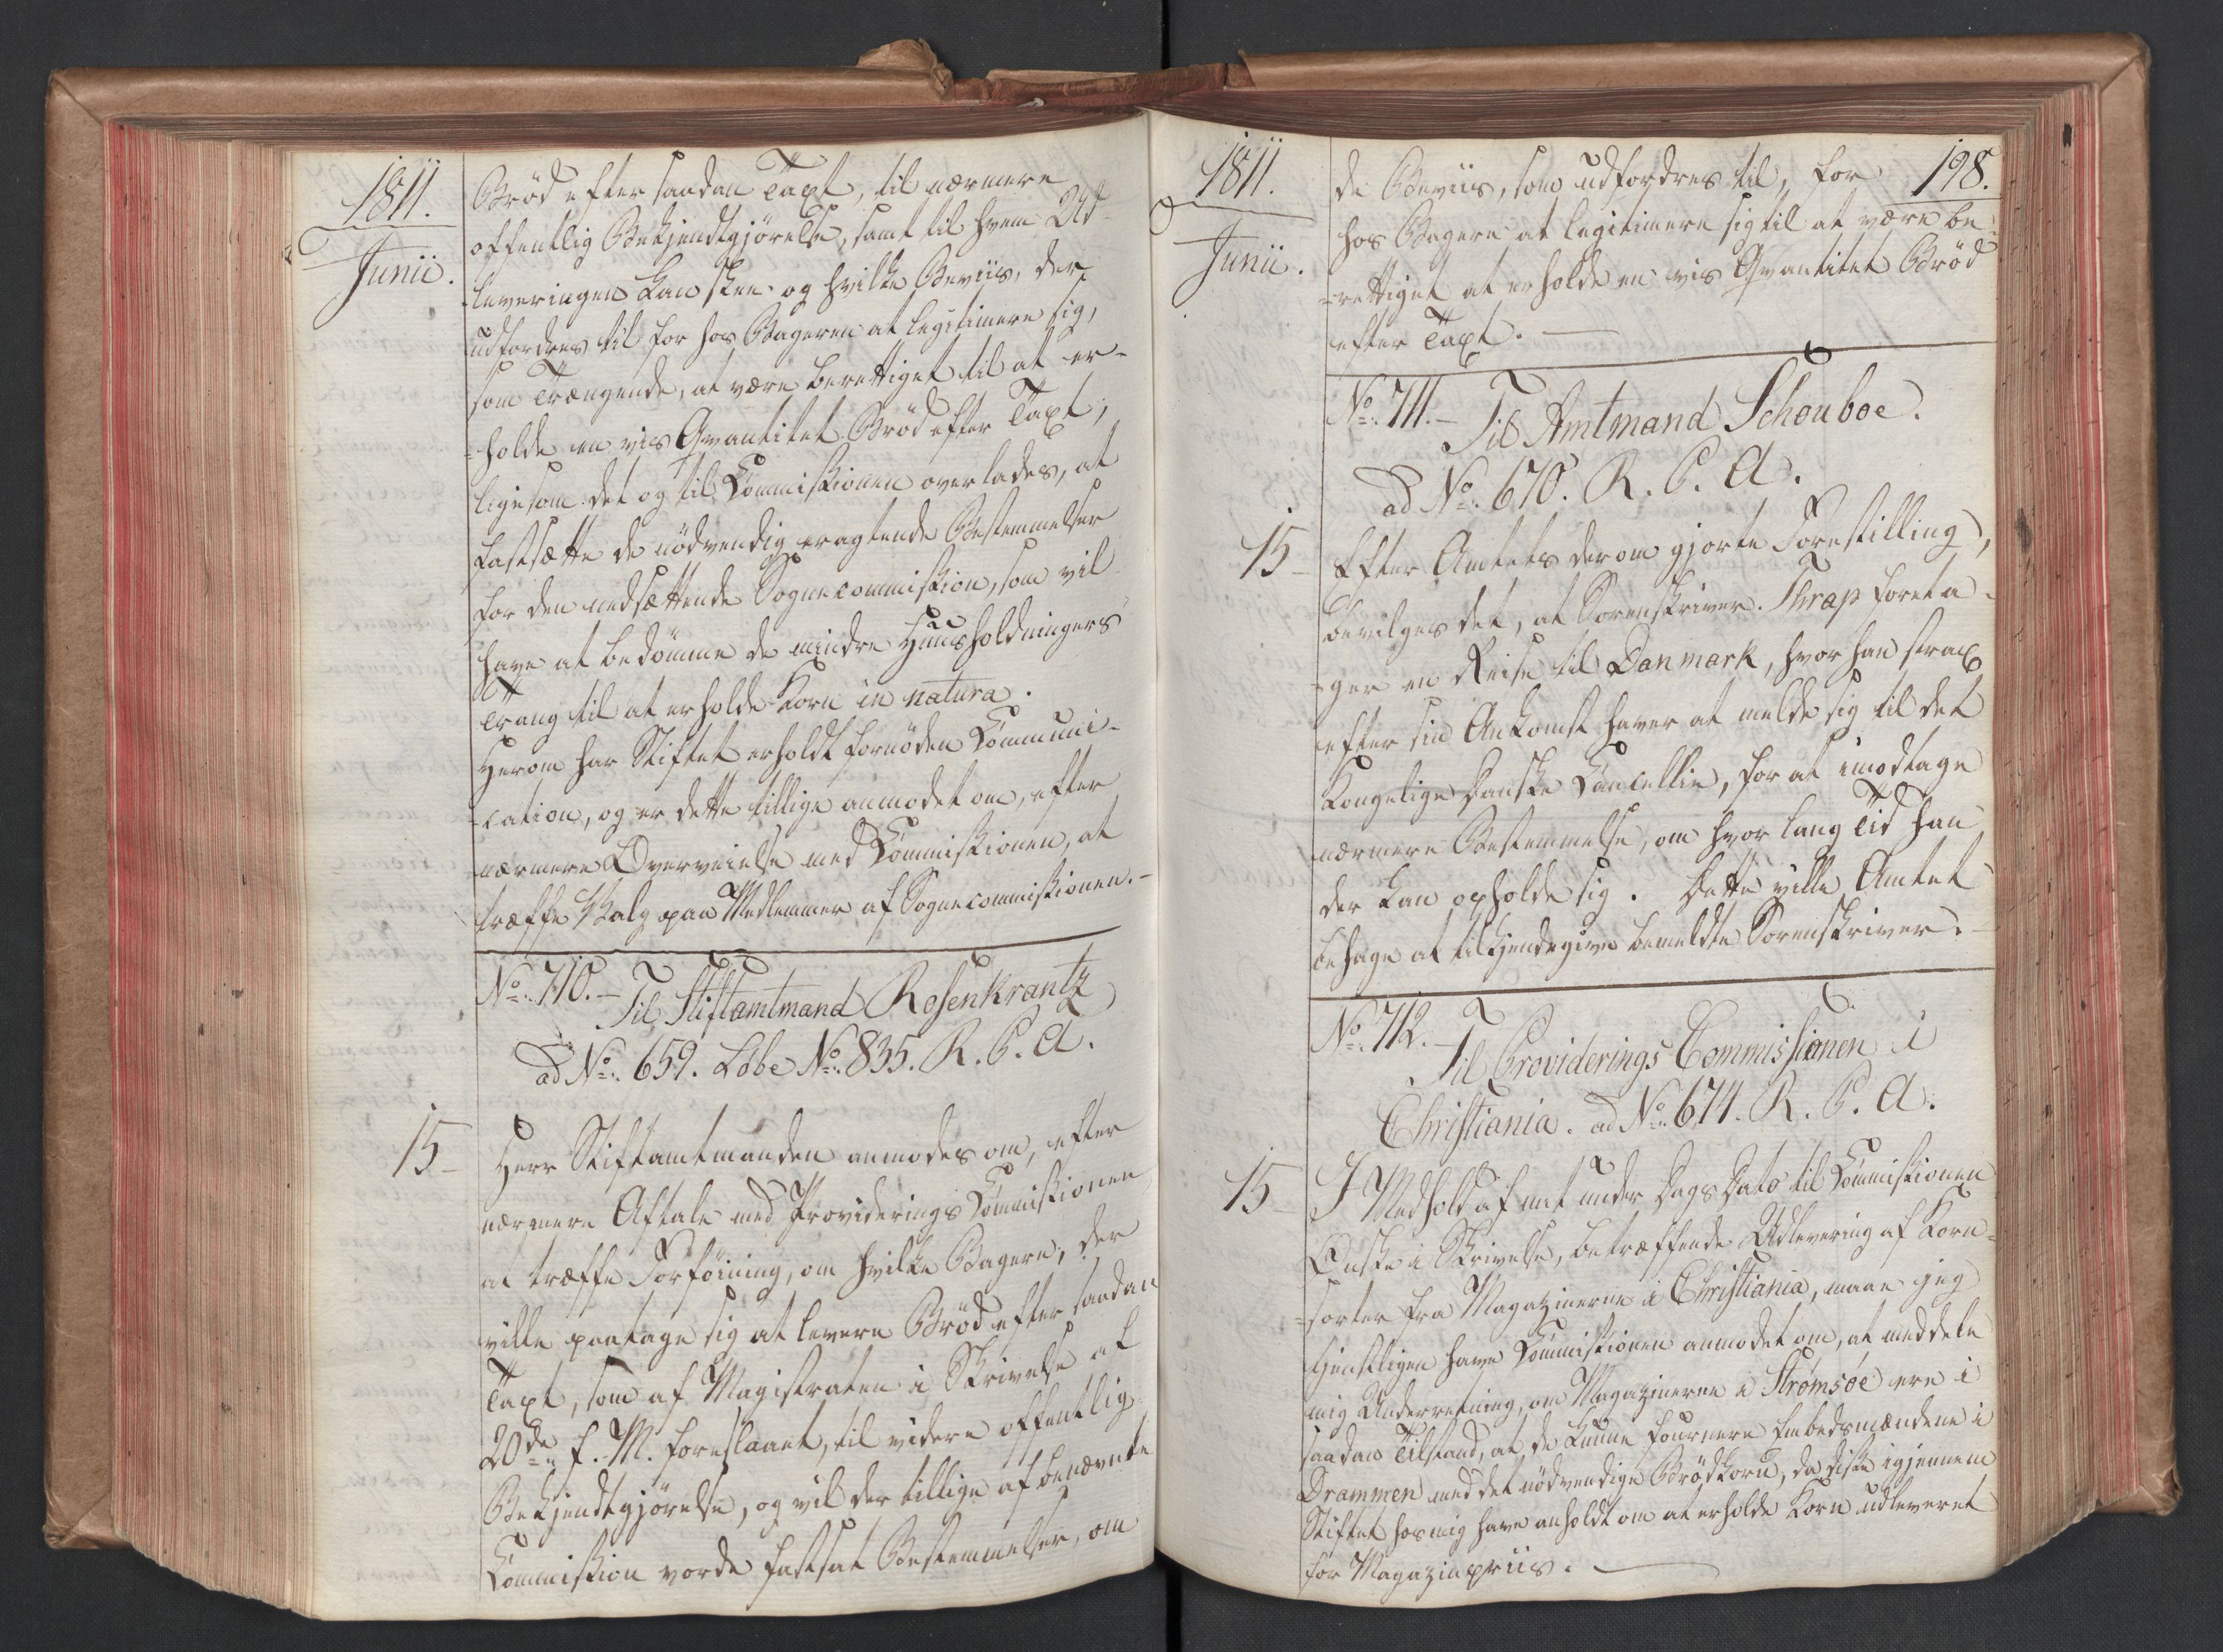 1811.
Junii.
Brød efter saadan Taxt, til nærmere
offentlig Bekjendtgjørelse, samt til hvem Ud-
leveringen kan skee og hvilke Beviis, der
udfordres til for hos Bageren at legitimere sig,
som Trængende, at være berettiget til at er-
=holde en vis Qvantitet Brød efter Taxt;
ligesom det og til Kommissionen overlades, at
fastsætte de nødvendig eragtende Bestemmelser
for den nedsættende Sognecommission, som vil
have at bedømme de mindre Huusholdningers
Trang til at erholde Korn in natura.
Herom har Stiftet erholdt fornøden Kommuni-
=cation, og er dette tillige anmodet om, efter
nærmere Overveielse med Kommissionen, at
træffe Valg paa Medlemmer af Sognecommissionen.-
No. 710.- Til Stiftamtmand Rosenkrantz
ad No. 659. Løbe No. 835. R. C. A.
15- Herr Stiftamtmanden anmodes om, efter
nærmere Aftale med Provideringskommissionen
at træffe Forføining, om hvilke Bagere, der
ville paatage sig at levere Brød efter saadan
Taxt, som af Magistraten i Skrivelse af
20de f. M. foreslaaet, til videre offentlig
Bekjendtgjørelse, og vil der tillige af benævnte
Kommission vorde fastsat Bestemmelser, om
1811.
Junii.
198.
de Beviis, som udfordres til, for
hos Bagere at legitimere sig til at være be-
=rettiget at erholde en vis Qvantitet Brød
efter Taxt.
No. 711.- Til Amtmand Schouboe.
ad No. 670. R. C. A.
15- Efter Amtets derom gjorte Forestilling,
bevilges det, at Sorenskriver Thrap foreta-
=ger en Reise til Danmark, hvor han strax
efter sin Ankomst haver at melde sig til det
Kongelige Danske Cancellie, for at imodtage
nærmere Bestemmelse, om hvor lang Tid han
der kan opholde sig. Dette ville Amtet
behage at tilkjendegive bemeldte Sorenskriver.-
No. 712.- Til Providerings Commissionen i
Christiania. ad No. 674. R. C. A.
15- I Medhold af mit under Dags Dato til Kommissionen
Ønske i Skrivelse, betræffende Udlevering af Korn-
=sorter fra Magazinerne i Christiania, maae jeg
tjenstligen have Kommissionen anmodet om, at meddele
mig Underretning, om Magazinerne i Strømsøe ere i
saadan Tilstand, at de kunne fournere Embedsmændene i
Drammen med det nødvendige Brødkorn, da disse igjennem
Stiftet hos mig have anholdt om at erholde Korn udleveret
for Magazinpriis.